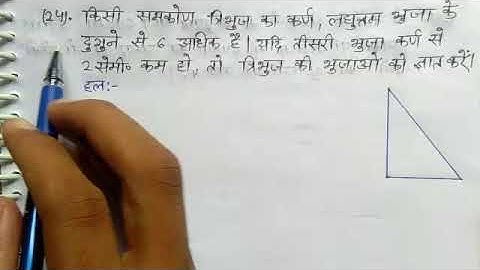 (24). किसी समकोण त्रिभुज का कर्ण, लघुत्तम भुजा के
दुगुने से 6 अधिक है। यदि तीसरी भुजा कर्ण से
2 सेमी॰ कम हो, तो त्रिभुज की भुजाओं को ज्ञात करें।
हल:-